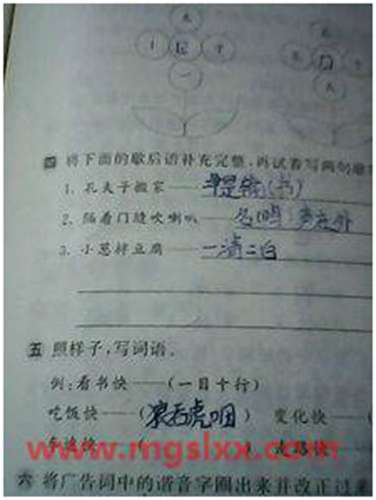 四 将下面的歇后语补充完整,再试着写两句歇
1. 孔夫子搬家——早是输(书)
2. 隔着门缝吹喇叭——名鸣声在外
3. 小葱拌豆腐——一清二白
五 照样子,写词语。
例:看书快——(一目十行)
吃饭快——(狼吞虎咽) 变化快——(
www.mgslxx.com
六 将广告词中的谐音字圈出来并改正过来